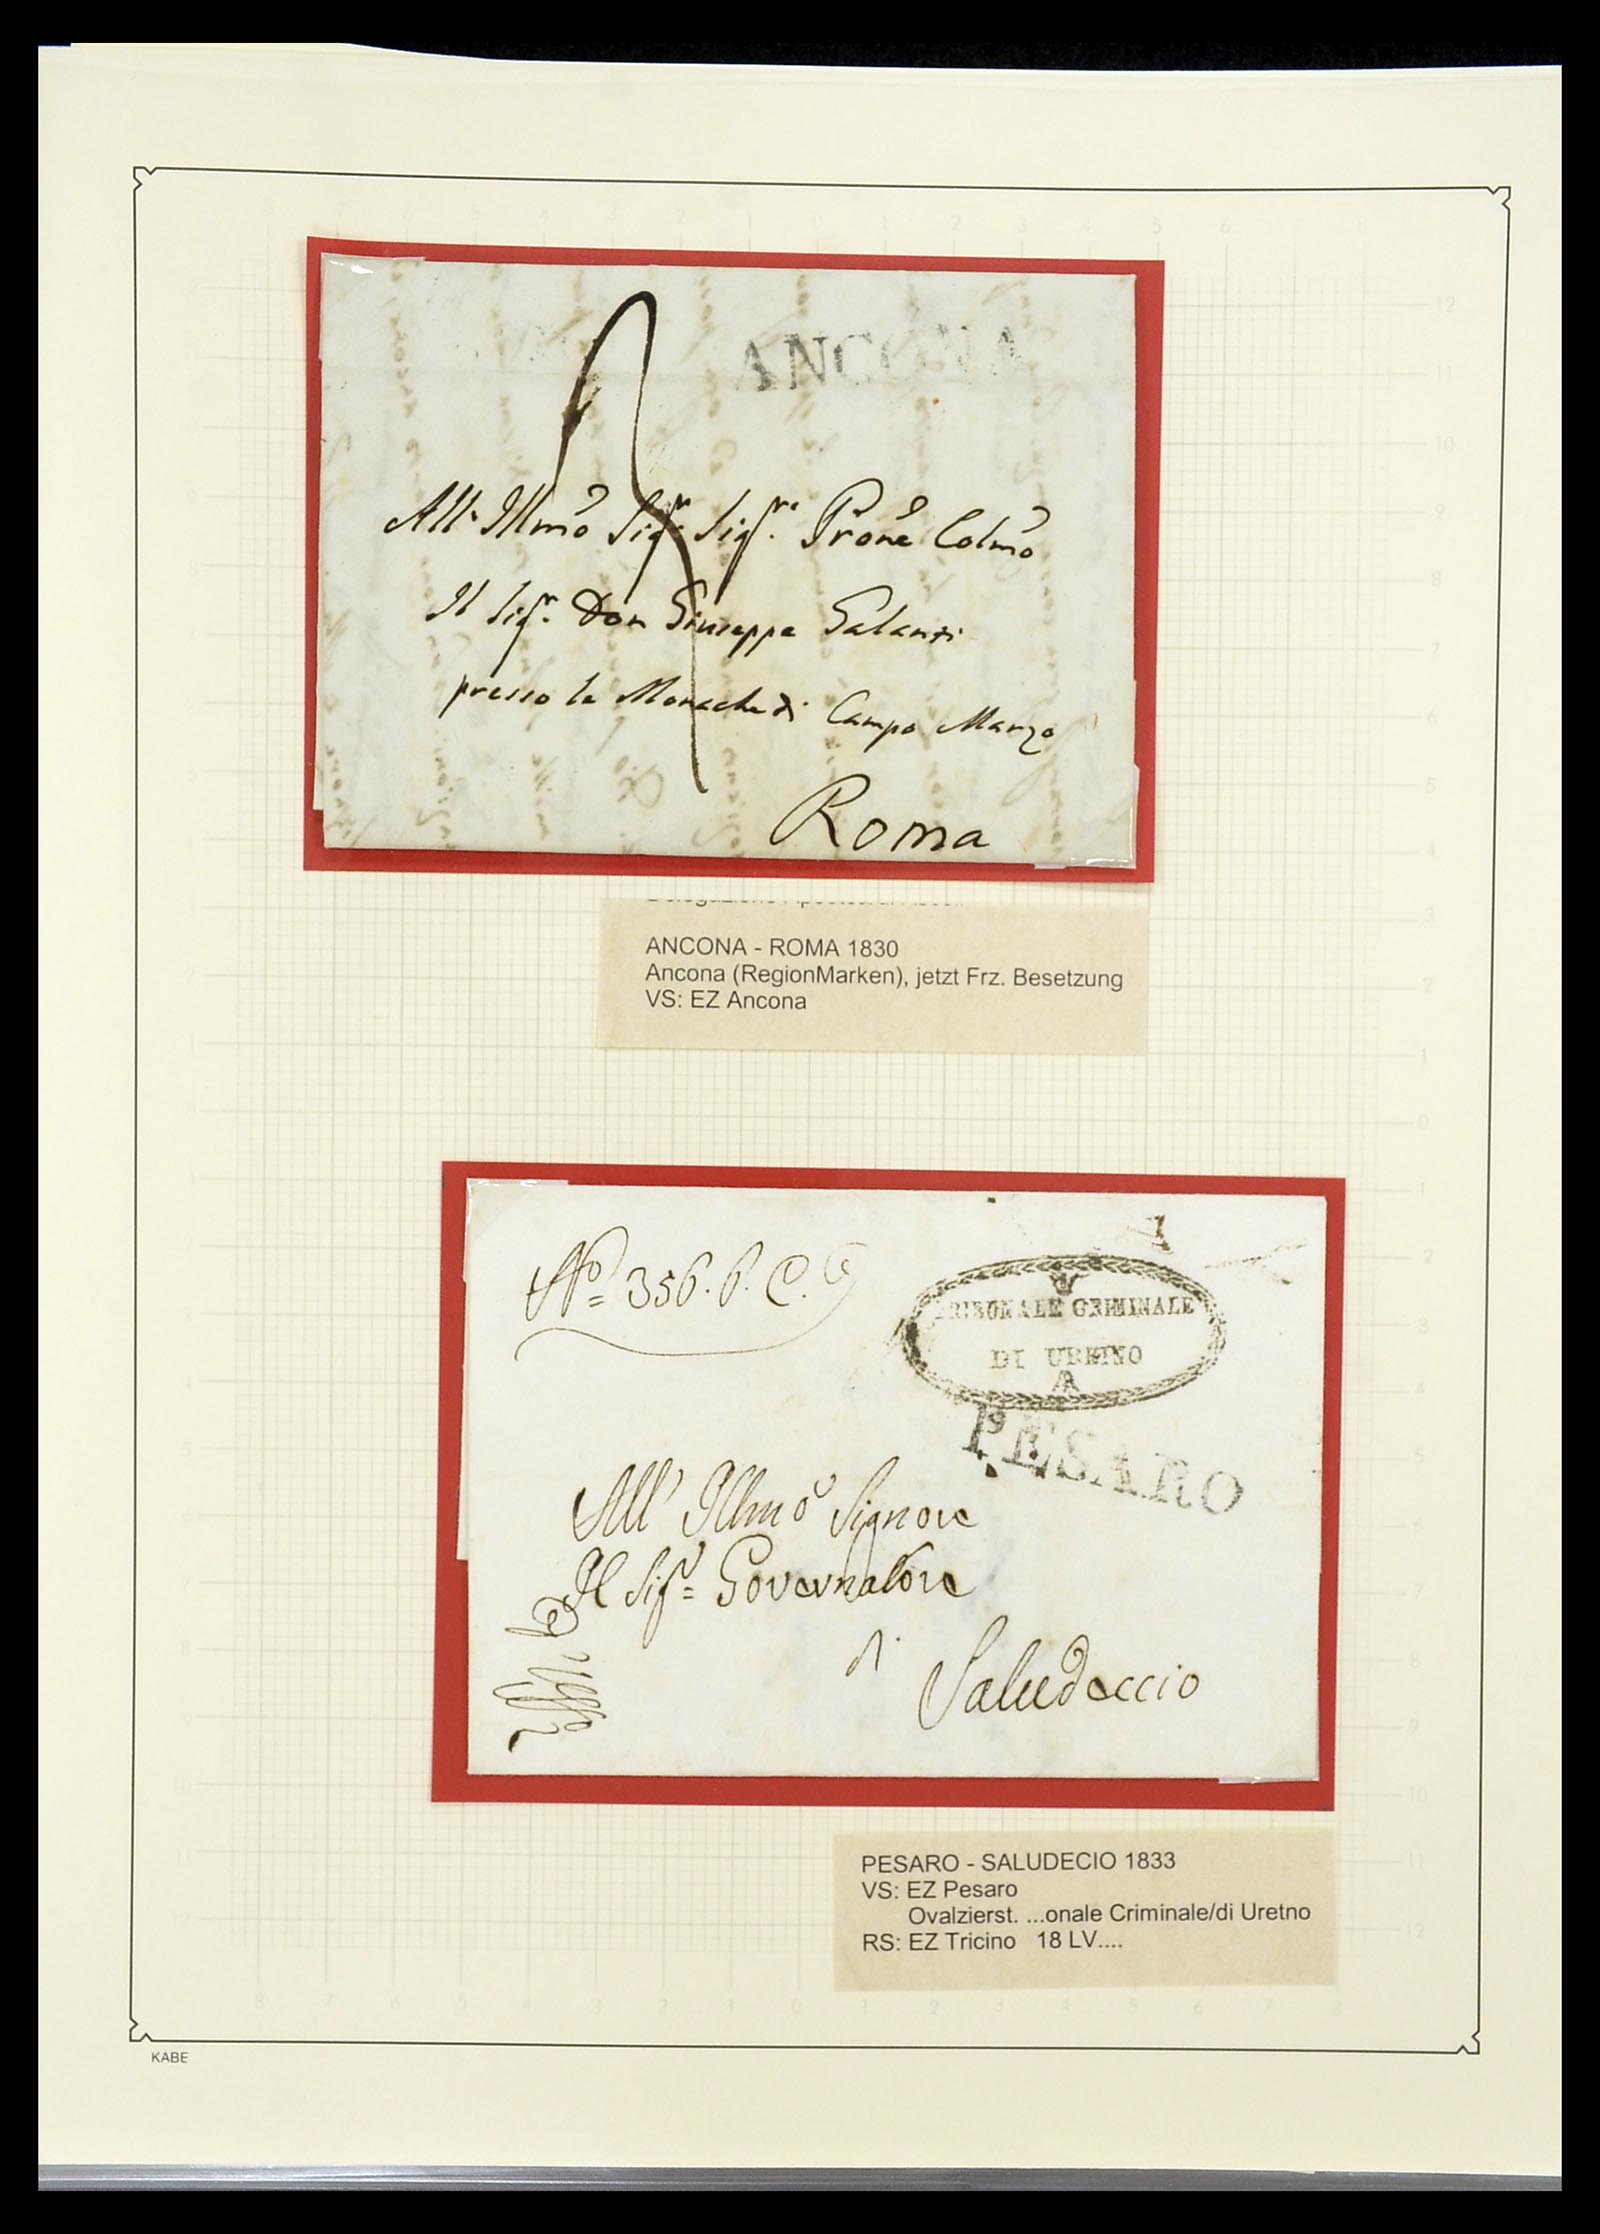 ANCONA
All' Illmo Sigr. Sigr. Prone Colmo
Il Sigr. Don Giuseppe Galanti
presso le Monache di Campo Marzo
Roma
ANCONA - ROMA 1830
Ancona (RegionMarken), jetzt Frz. Besetzung
VS: EZ Ancona
No= 356. P. C.
TRIBUNALE CRIMINALE
DI URBINO
PESARO
All' Illmo Signore
Il Sigr= Governatore
di
Saludeccio
PESARO - SALUDECIO 1833
VS: EZ Pesaro
Ovalzierst. ...onale Criminale/di Uretno
RS: EZ Tricino 18 LV....
KABE